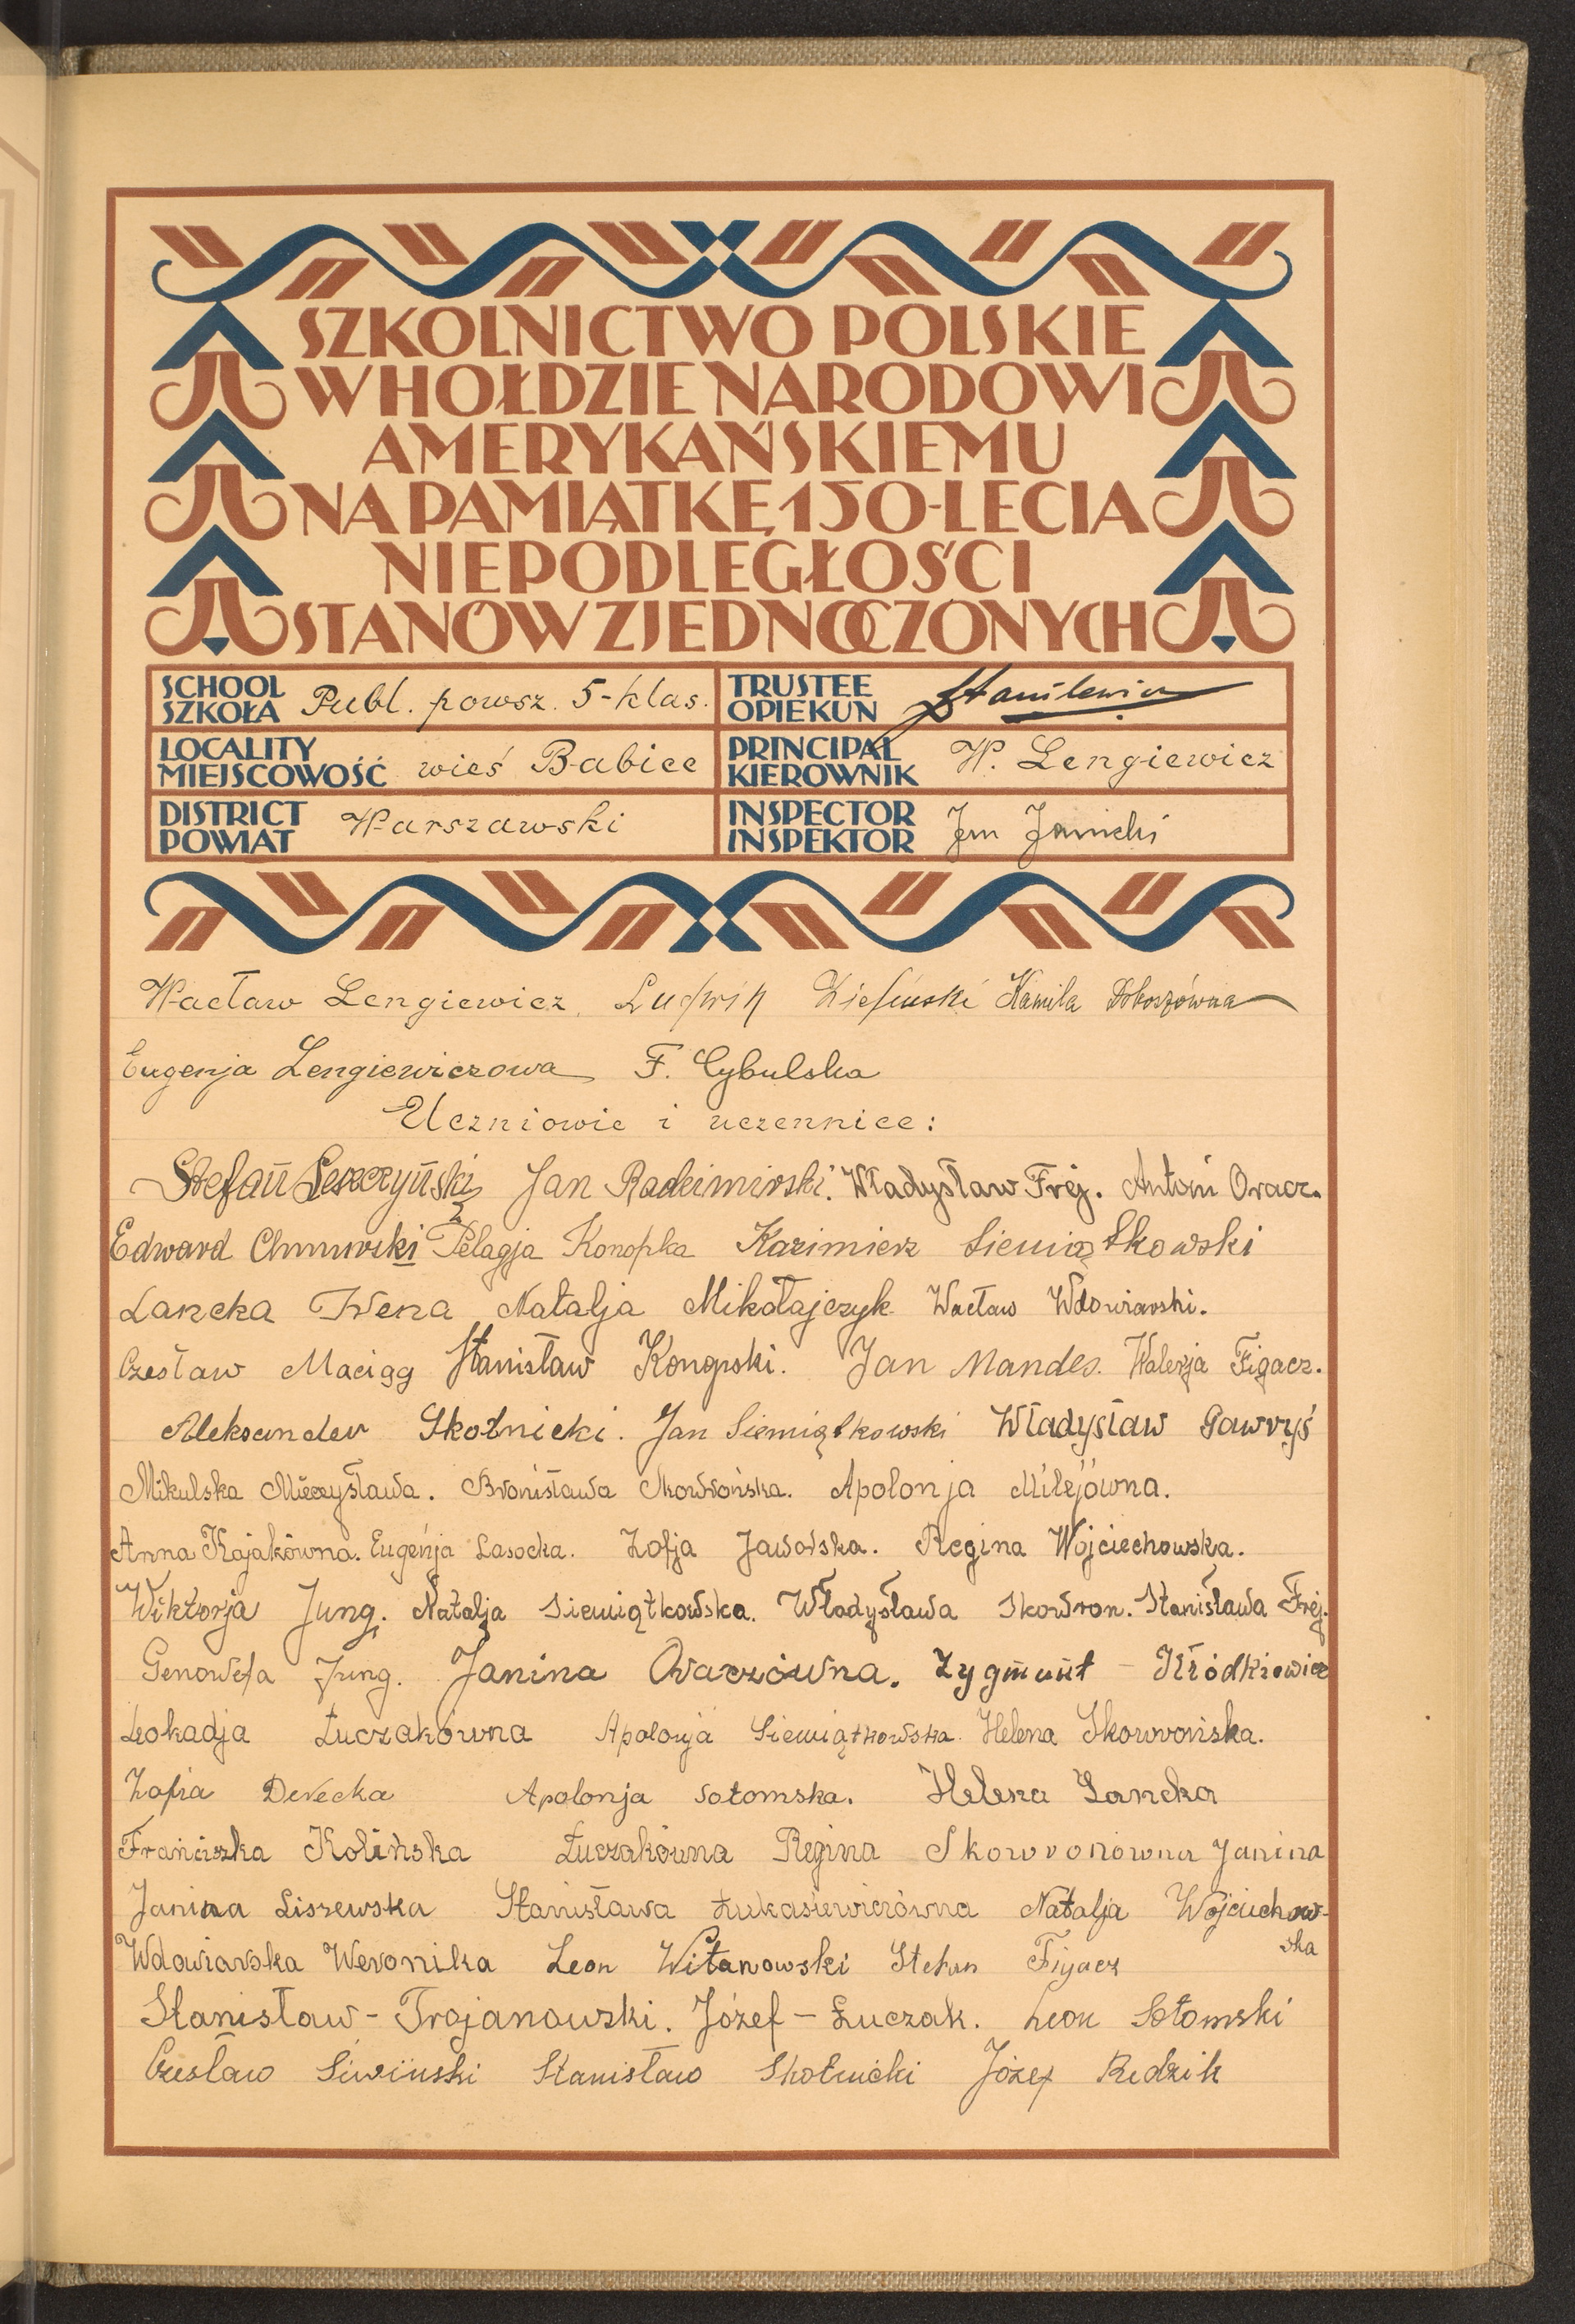 SZKOLNICTWO POLSKIE
W HOŁDZIE NARODOWI
AMERYKAŃSKIEMU
NA PAMIĄTKĘ 150-LECIA
NIEPODLEGŁOŚCI
STANÓW ZJEDNOCZONYCH
SCHOOL SZKOŁA Publ. powsz. 5-klas.
TRUSTEE OPIEKUN
LOCALITY MIEJSCOWOŚĆ wieś Babice
PRINCIPAL KIEROWNIK W. Lengiewicz
DISTRICT POWIAT Warszawski
INSPECTOR INSPEKTOR Jan Janicki
Wacław Lengiewicz, Ludwik Zieliński Kamila
Eugenja Lengiewiczowa F. Cybulska
Uczniowie i uczennice:
Stefan Leszczyński Jan Radzimirski. Władysław Frej. Antoni Oracz.
Edward Pelagja Konopka Kazimierz Siemiątkowski
Lancka Irena Natalja Mikołajczyk Wacław Wdowiarski.
Czesław Maciąg Stanisław Jan Mandes. Walerja Figacz.
Aleksander Skotnicki. Jan Siemiątkowski Władysław Gawryś
Mikulska Mieczysława. Bronisława Skowrońska. Apolonja Milejówna.
Anna Kajakówna. Eugenja Lasocka. Zofja Jaworska. Regina Wojciechowska.
Wiktorja Jung. Natalja Siemiątkowska. Władysława Skowron. Stanisława Frej.
Genowefa Jung. Janina Oraczówna. Zygmunt Kłódkiewicz
Leokadja Łuczakówna Apolonja Siemiątkowska. Helena Skowrońska.
Zofia Derecka Apolonja Sotomska. Helena Lancka
Franciszka Kolińska Łuczakówna Regina Skowronówna Janina
Janina Liszewska Stanisława Łukasiewiczówna Natalja Wojciechow-
ska
Wdowiarska Weronika Leon Witanowski Stefan Figacz
Stanisław - Trojanowski. Józef - Łuczak. Leon Sotomski
Czesław Siwiński Stanisław Skotnicki Józef Redzik